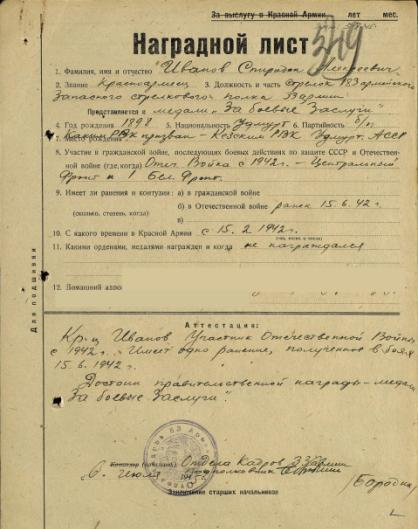 За выслугу в Красной Армии лет мес.
Наградной лист
1. Фамилия, имя и отчество "Иванов Спиридон
2. Звание Красноармеец 3. Должность и часть стрелок 183 армейского
Запасного стрелкового полка 3 армии
Представляется к медали "За боевые Заслуги"
4. Год рождения 5. Национальность Удмурт 6. Партийность б/п
7. Каким РВК призван – Кезским РВК Удмурт. АССР
8. Участие в гражданской войне, последующих боевых действиях по защите СССР и Отечествен-
ной войне (где, когда) Отеч. Война с 1942 г. – Центральный
Фронт и 1 Бел. Фронт.
9. Имеет ли ранения и контузии: а) в гражданской войне
б) в Отечественной войне ранен 15.6.42 г.
(сколько, степень, когда)
в)
10. С какого времени в Красной Армии с 15.2.1942 г.
11. Какими орденами, медалями награжден и когда не награждался
12. Домашний адрес
Для подшивки
Аттестация:
Кр-ц Иванов Участник Отечественной Войны
с 1942 г. Имеет одно ранение, полученное в боях
15.6.1942 г.
Достоин правительственной награды – медали
"За боевые Заслуги".
Отдела Кадров 3 Армии
6 июля Подполковник
Заключение старших начальников